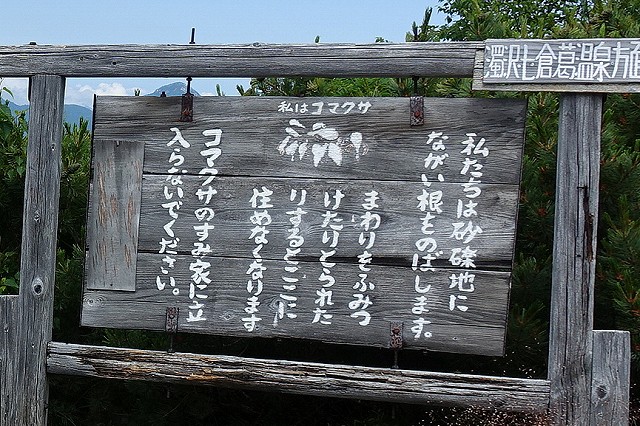 濁沢七倉葛温泉方面
私はコマクサ
私たちは砂礫地に
ながい根をのばします。
まわりをふみつ
けたりとられた
りするとここに
住めなくなります
コマクサのすみ家に立
入らないでください。